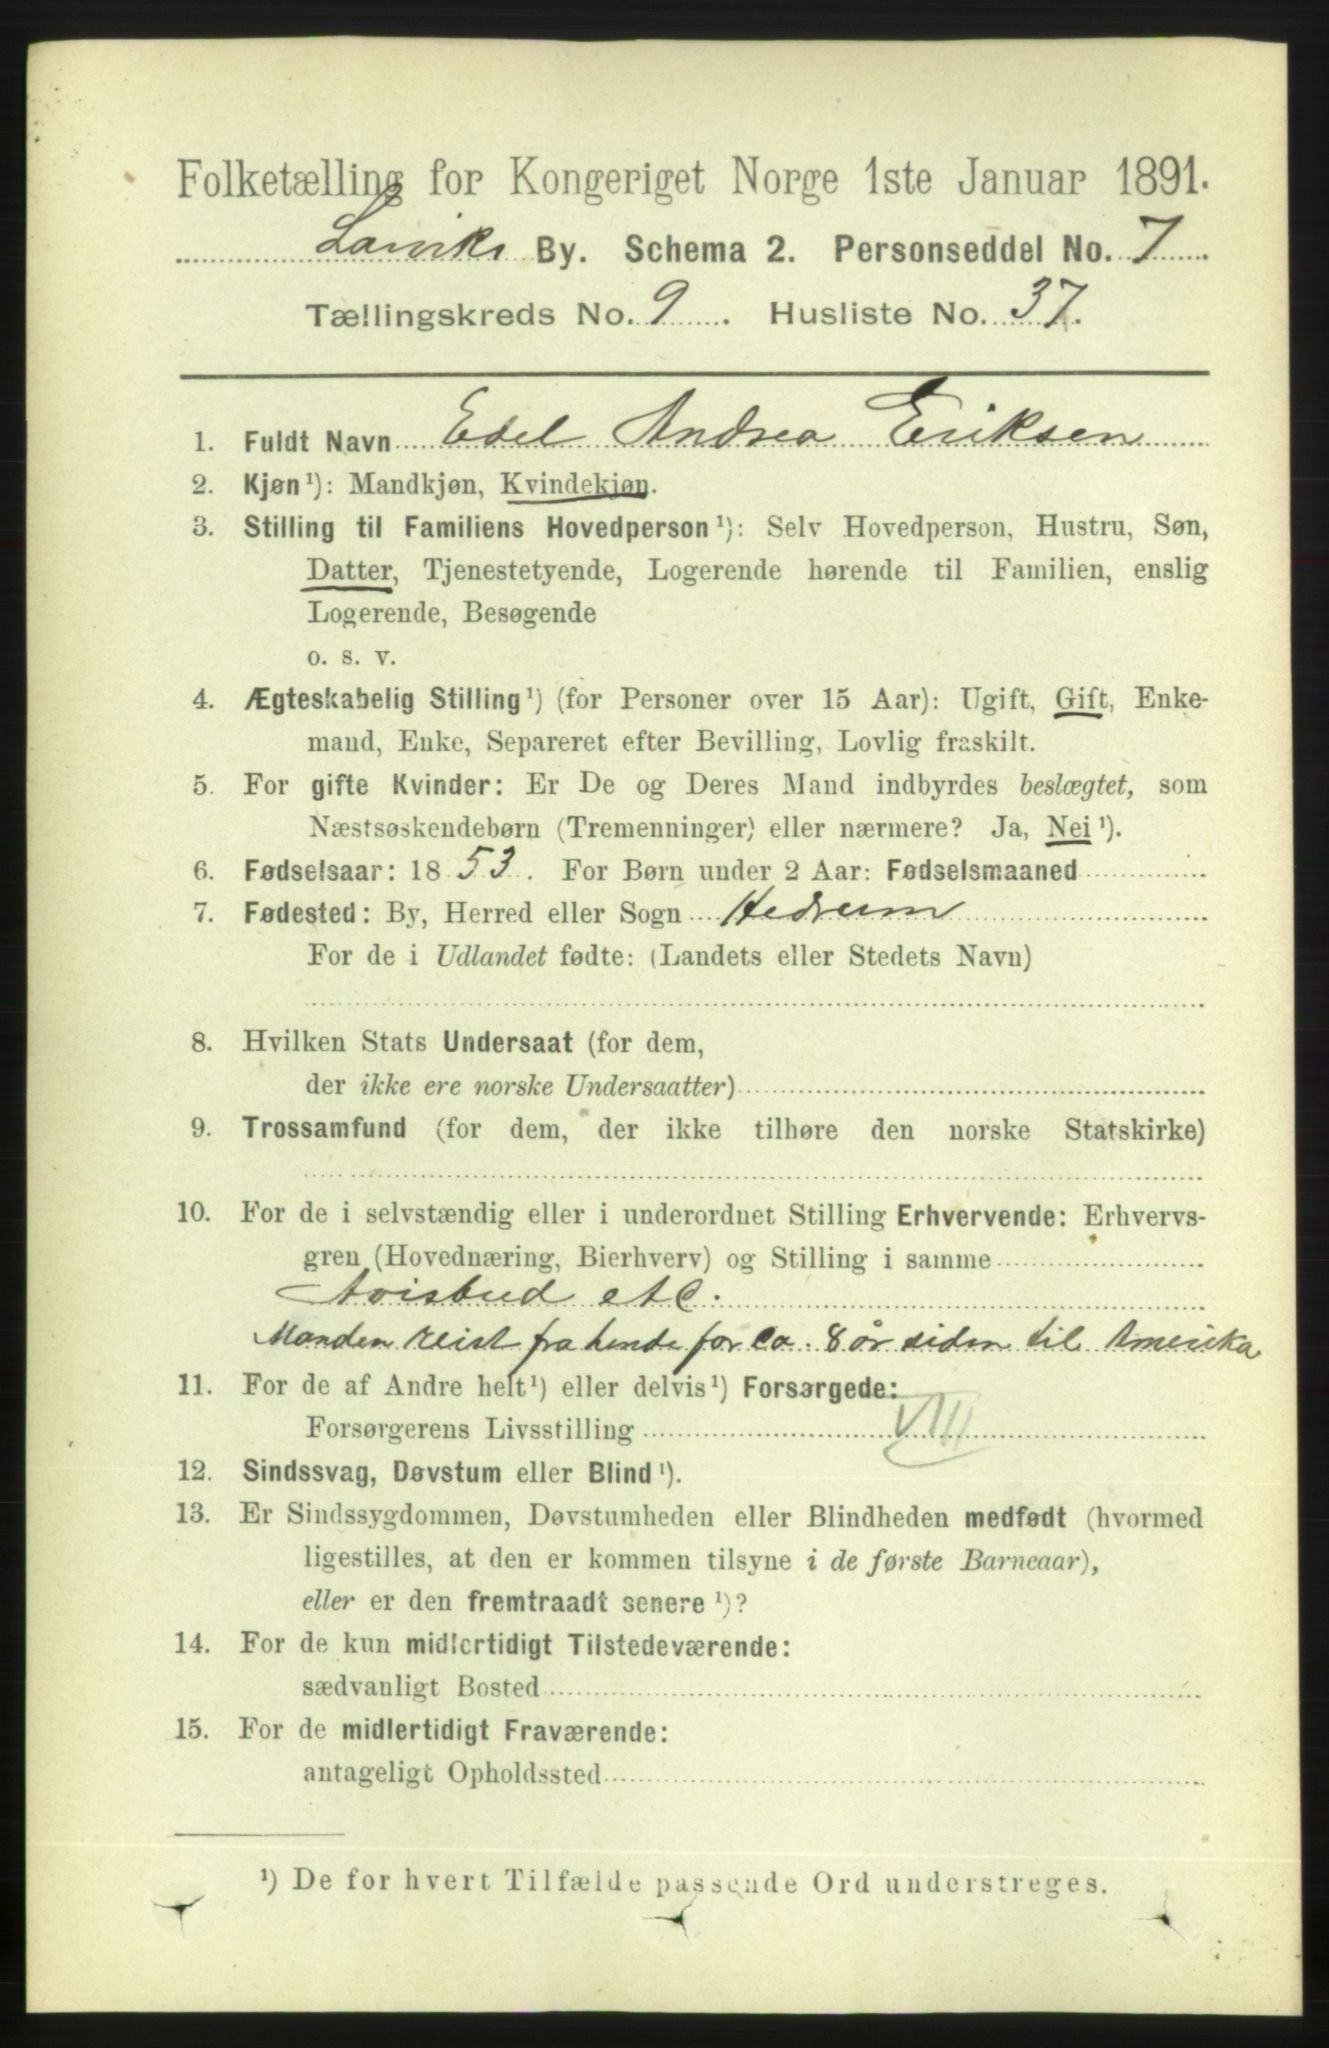 Folketælling for Kongeriget Norge 1ste Januar 1891.
Larviks By. Schema 2. Personseddel No. 7
Tællingskreds No. 9. Husliste No. 37.
1. Fuldt Navn Edel Andrea Eriksen
2. Kjøn¹): Mandkjøn, Kvindekjøn.
3. Stilling til Familiens Hovedperson¹): Selv Hovedperson, Hustru, Søn,
Datter, Tjenestetyende, Logerende hørende til Familien, enslig
Logerende, Besøgende
o. s. v.
4. Ægteskabelig Stilling¹) (for Personer over 15 Aar): Ugift, Gift, Enke-
mand, Enke, Separeret efter Bevilling, Lovlig fraskilt.
5. For gifte Kvinder: Er De og Deres Mand indbyrdes beslægtet, som
Næstsøskendebørn (Tremenninger) eller nærmere? Ja, Nei¹).
6. Fødselsaar: 1853. For Børn under 2 Aar: Fødselsmaaned
7. Fødested: By, Herred eller Sogn Hedrum
For de i Udlandet fødte: (Landets eller Stedets Navn)
8. Hvilken Stats Undersaat (for dem,
der ikke ere norske Undersaatter)
9. Trossamfund (for dem, der ikke tilhøre den norske Statskirke)
10. For de i selvstændig eller i underordnet Stilling Erhvervende: Erhvervs-
gren (Hovednæring, Bierhverv) og Stilling i samme
Avisbud etc.
Manden reist fra hende for ca. 8 år siden til Amerika
11. For de af Andre helt¹) eller delvis¹) Forsørgede:
Forsørgerens Livsstilling VIII
12. Sindssvag, Døvstum eller Blind¹).
13. Er Sindssygdommen, Døvstumheden eller Blindheden medfødt (hvormed
ligestilles, at den er kommen tilsyne i de første Barneaar),
eller er den fremtraadt senere¹)?
14. For de kun midlertidigt Tilstedeværende:
sædvanligt Bosted
15. For de midlertidigt Fraværende:
antageligt Opholdssted
¹) De for hvert Tilfælde passende Ord understreges.